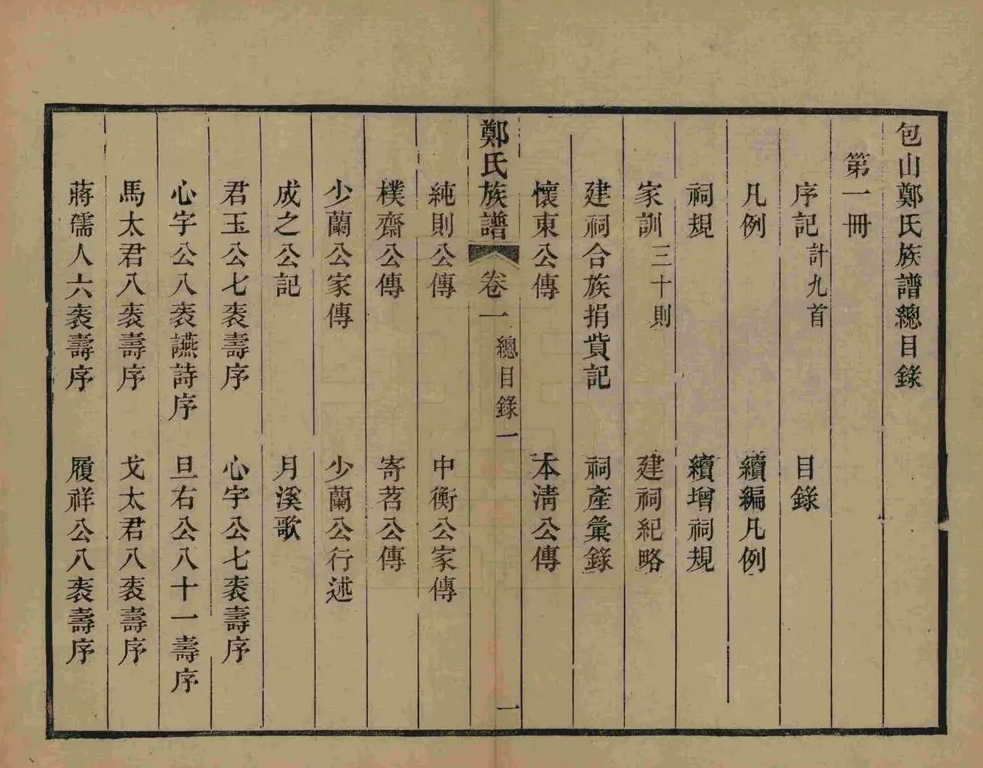 包山鄭氏族譜總目錄
第一冊
序記計九首 目錄
凡例 續編凡例
祠規 續增祠規
家訓三十則 建祠紀略
建祠合族捐貲記 祠產彙錄
懷東公傳 本淸公傳
鄭氏族譜 卷一 總目錄一 一
純則公傳 中衡公家傳
樸齋公傳 寄茗公傳
少蘭公家傳 少蘭公行述
成之公記 月溪歌
君玉公七袠壽序 心宇公七袠壽序
心宇公八袠讌詩序 旦右公八十一壽序
馬太君八袠壽序 戈太君八袠壽序
蔣孺人六袠壽序 履祥公八袠壽序